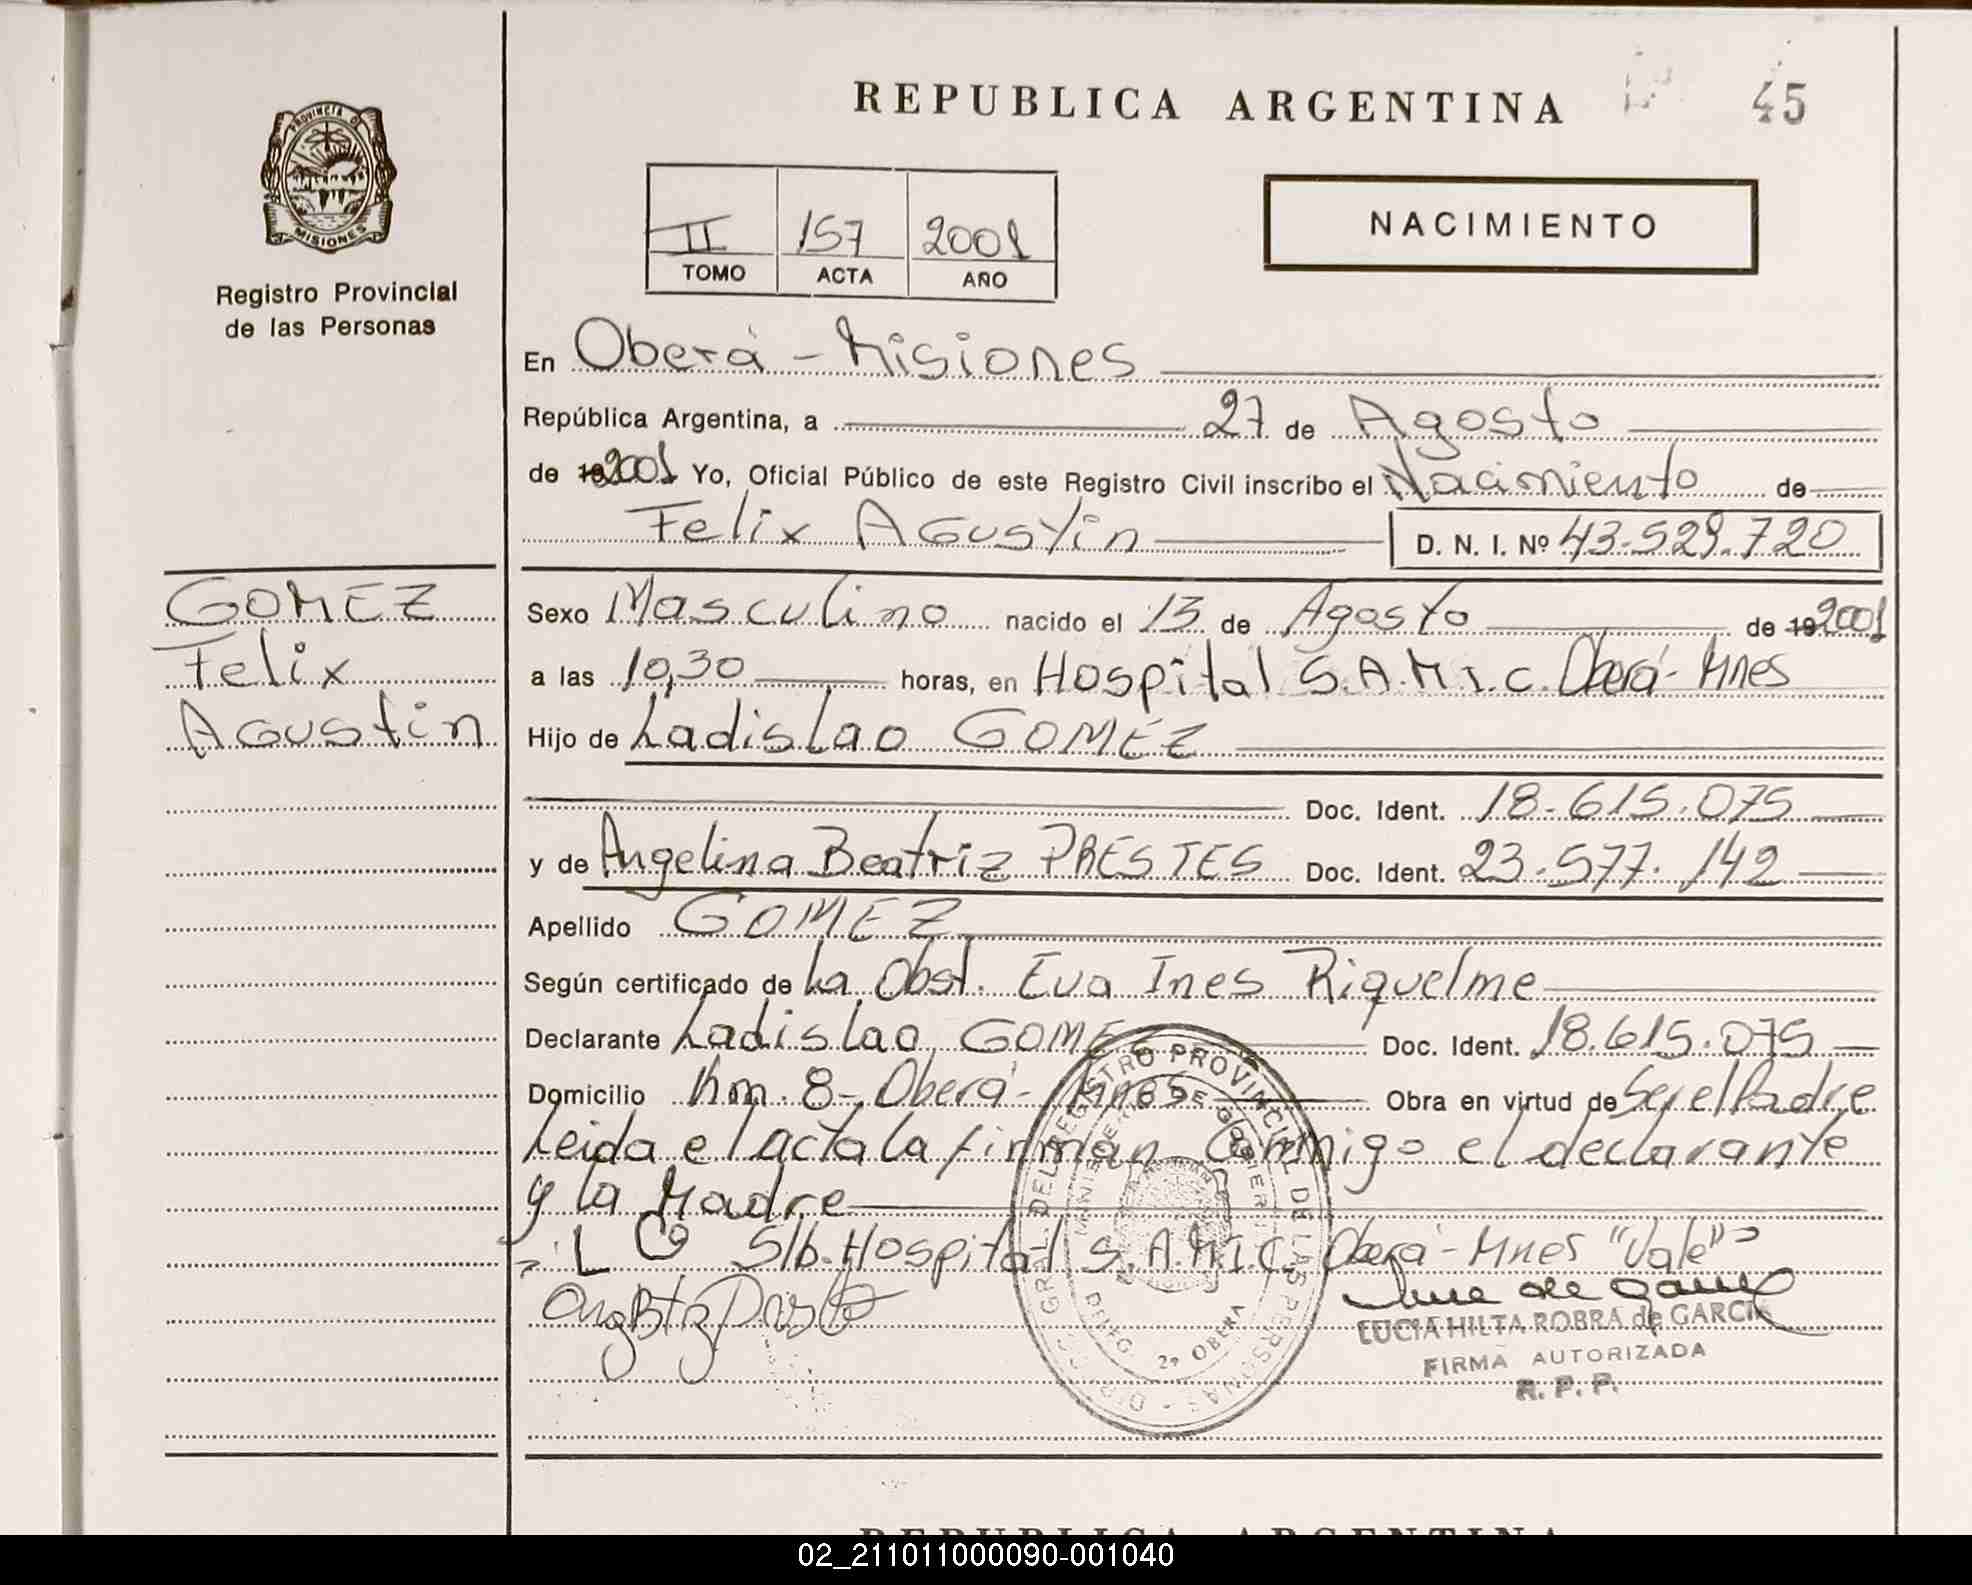 REPUBLICA ARGENTINA
45
PROVINCIA DE
MISIONES
Registro Provincial
de las Personas
II 157 2001
TOMO ACTA AÑO
NACIMIENTO
En Oberá - Misiones
República Argentina, a 27 de Agosto
de 19 2001 Yo, Oficial Público de este Registro Civil inscribo el Nacimiento de
Felix Agustin D. N. I. Nº 43.529.720
GOMEZ
Felix
Agustin
Sexo Masculino nacido el 13 de Agosto de 19 2001
a las 10,30 horas, en Hospital S.A.M.I.C. Oberá - Mnes
Hijo de Ladislao GOMEZ
Doc. Ident. 18.615.075
y de Angelina Beatriz PRESTES Doc. Ident. 23.577.142
Apellido GOMEZ
Según certificado de La Obst. Eva Ines Riquelme
Declarante Ladislao GOMEZ Doc. Ident. 18.615.075
Domicilio Km. 8 - Oberá - Mnes Obra en virtud de Ser el Padre
Leida el acta la firman Conmigo el declarante
y la Madre
S/b. Hospital S.A.M.I.C. Oberá - Mnes "Vale"
DIREC. GRAL. DEL REGISTRO PROVINCIAL DE LAS PERSONAS
MINISTERIO DE GOBIERNO
DELEG. 2ª OBERA
LUCIA HILTA ROBRA de GARCIA
FIRMA AUTORIZADA
R. P. P.
REPUBLICA ARGENTINA
02_211011000090-001040